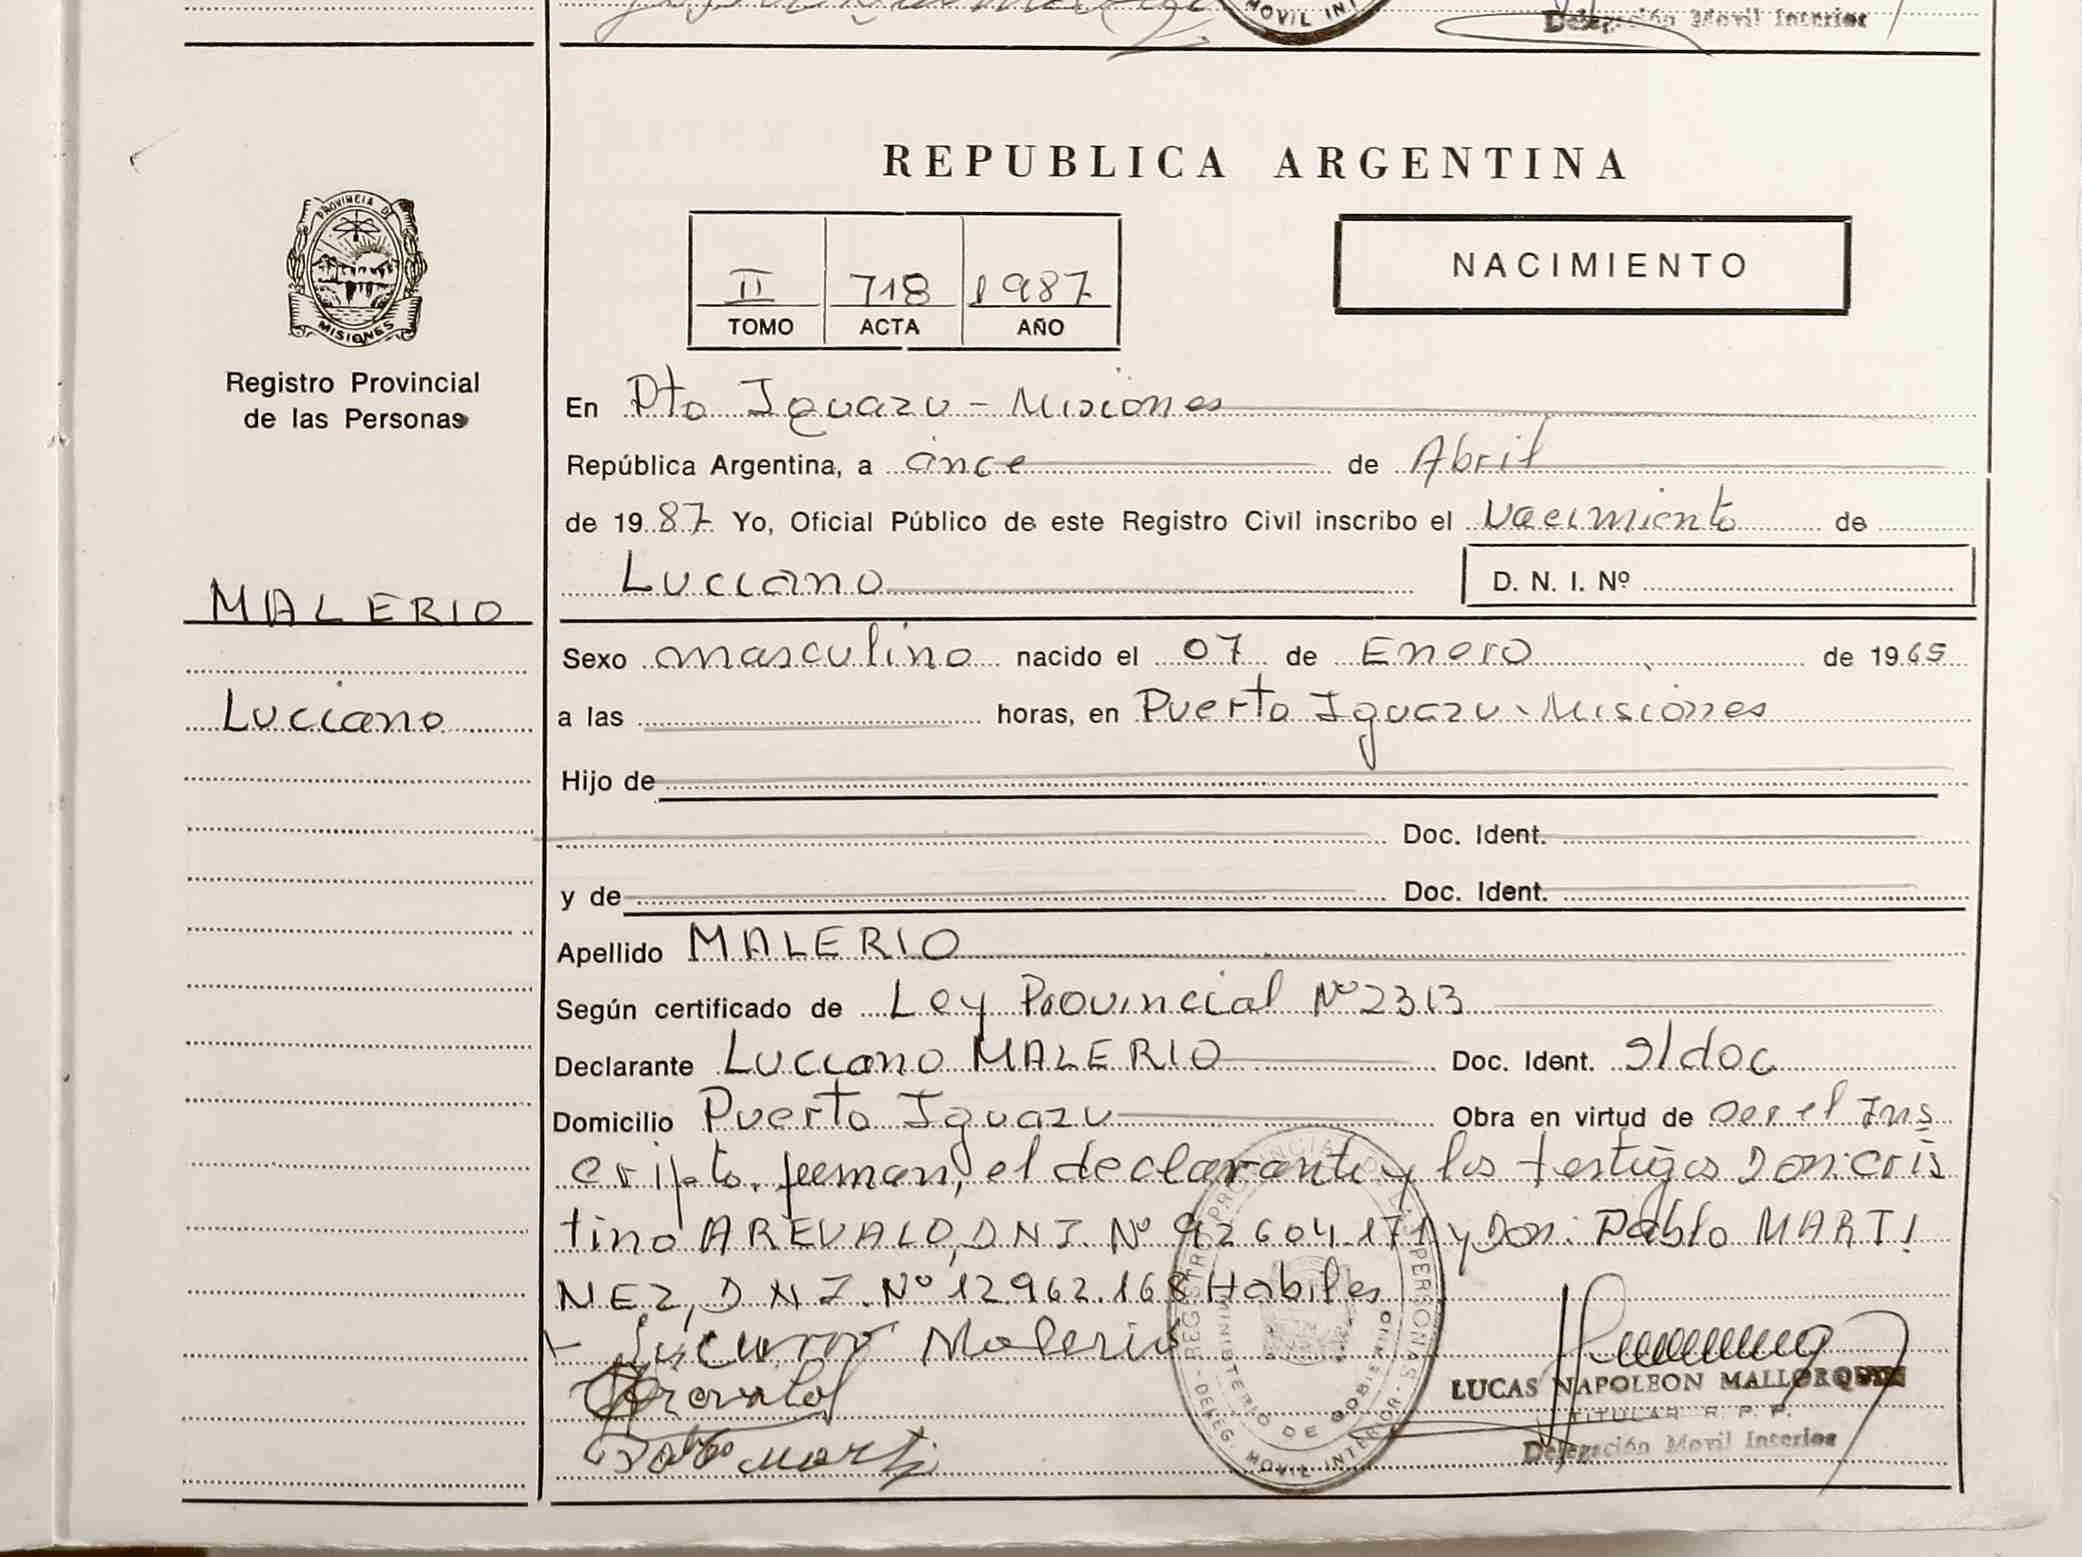 MOVIL INT
Delegación Movil Interior
REPUBLICA ARGENTINA
PROVINCIA DE
MISIONES
Registro Provincial
de las Personas
II 718 1987
TOMO ACTA AÑO
NACIMIENTO
En Pto Iguazu - Misiones
República Argentina, a once de Abril
de 19 87 Yo, Oficial Público de este Registro Civil inscribo el Nacimiento de
Luciano D. N. I. Nº
MALERIO
Luciano
Sexo masculino nacido el 07 de Enero de 19 65
a las horas, en Puerto Iguazu - Misiones
Hijo de
Doc. Ident.
y de Doc. Ident.
Apellido MALERIO
Según certificado de Ley Provincial Nº 2313
Declarante Luciano MALERIO Doc. Ident. s/doc
Domicilio Puerto Iguazu Obra en virtud de ser el Ins
cripto. firman, el declarante y los testigos Don: Cris
tino AREVALO, DNI. Nº 92.604.171 y Don: Pablo MARTI
NEZ, DNI. Nº 12.962.168 Habiles
Luciano Malerio
Arevalo
Pablo Marti
REGISTRO PROVINCIAL DE LAS PERSONAS
MINISTERIO DE GOBIERNO
DELEG. MOVIL INTERIOR
LUCAS NAPOLEON MALLORQUIN
TITULAR R. P. P.
Delegación Movil Interior